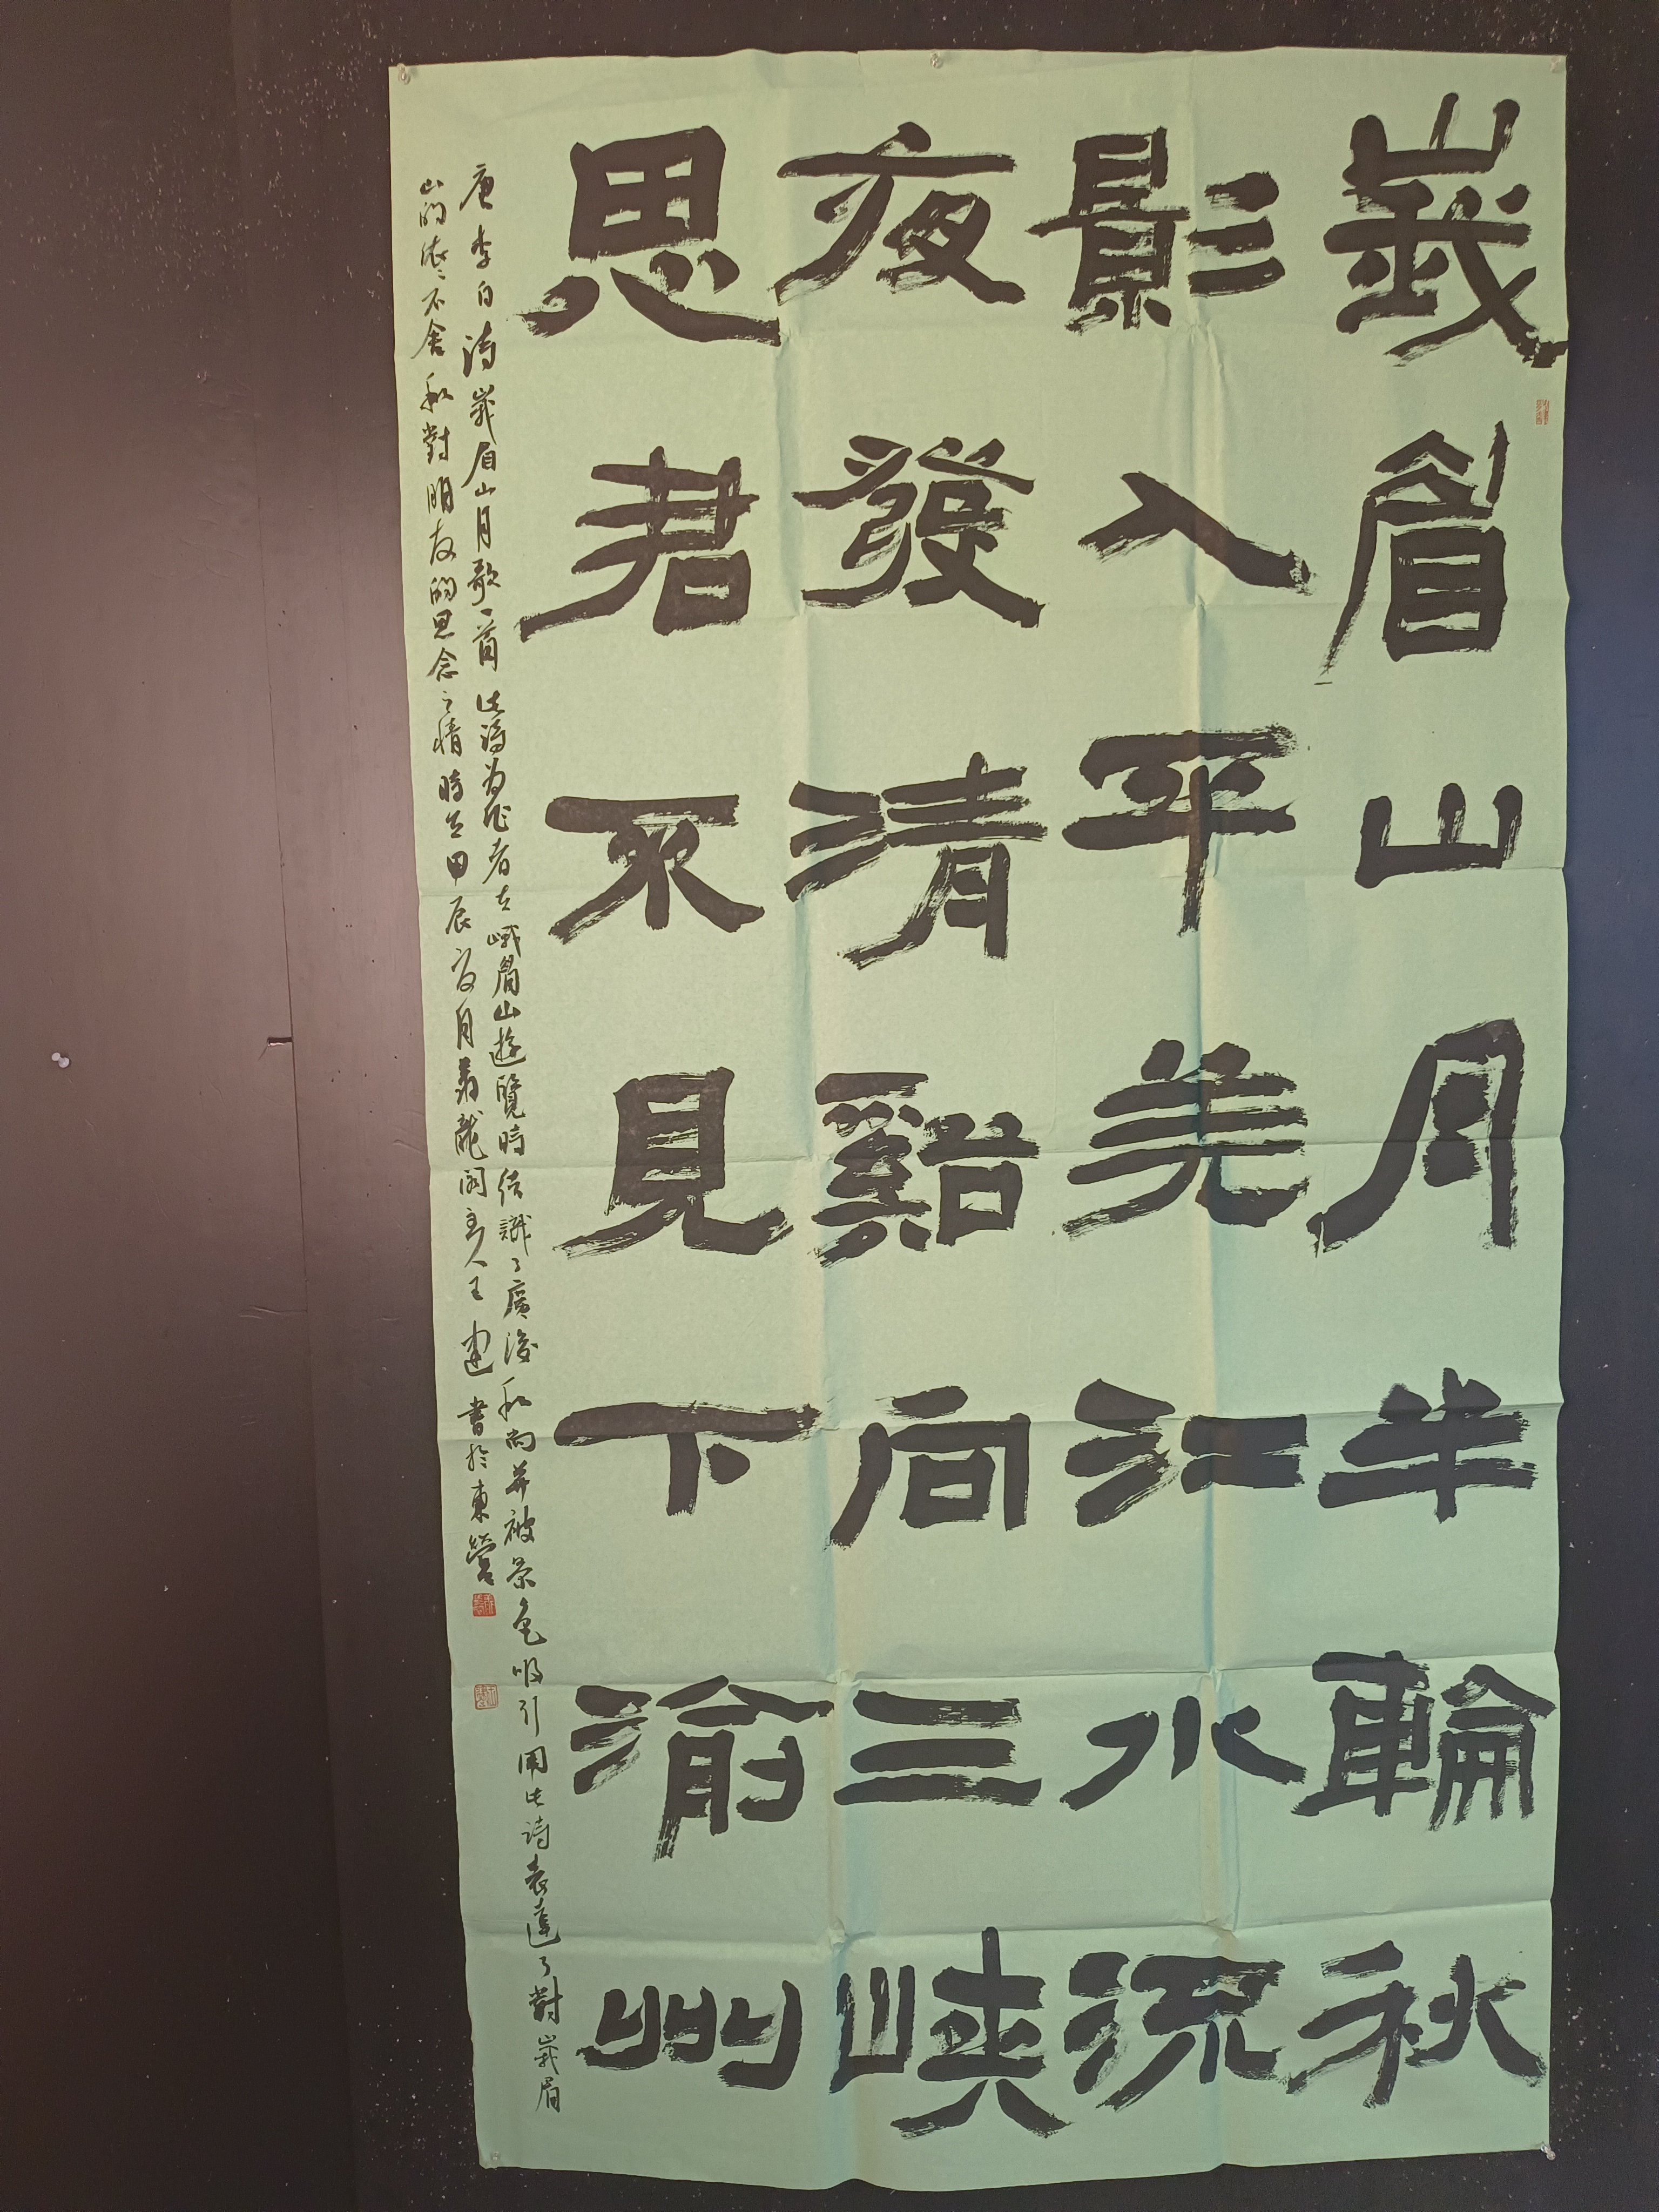 峩眉山月半輪秋
影入平羌江水流
夜發清谿向三峽
思君不見下渝州
唐李白詩峩眉山月歌一首此詩为作者在峨眉山遊覽時结識了廣浚和尚并被景色吸引用此诗表達了對峩眉
山的依依不舍和對朋友的思念之情時在甲辰夏月 龍阁主人王建書於東營